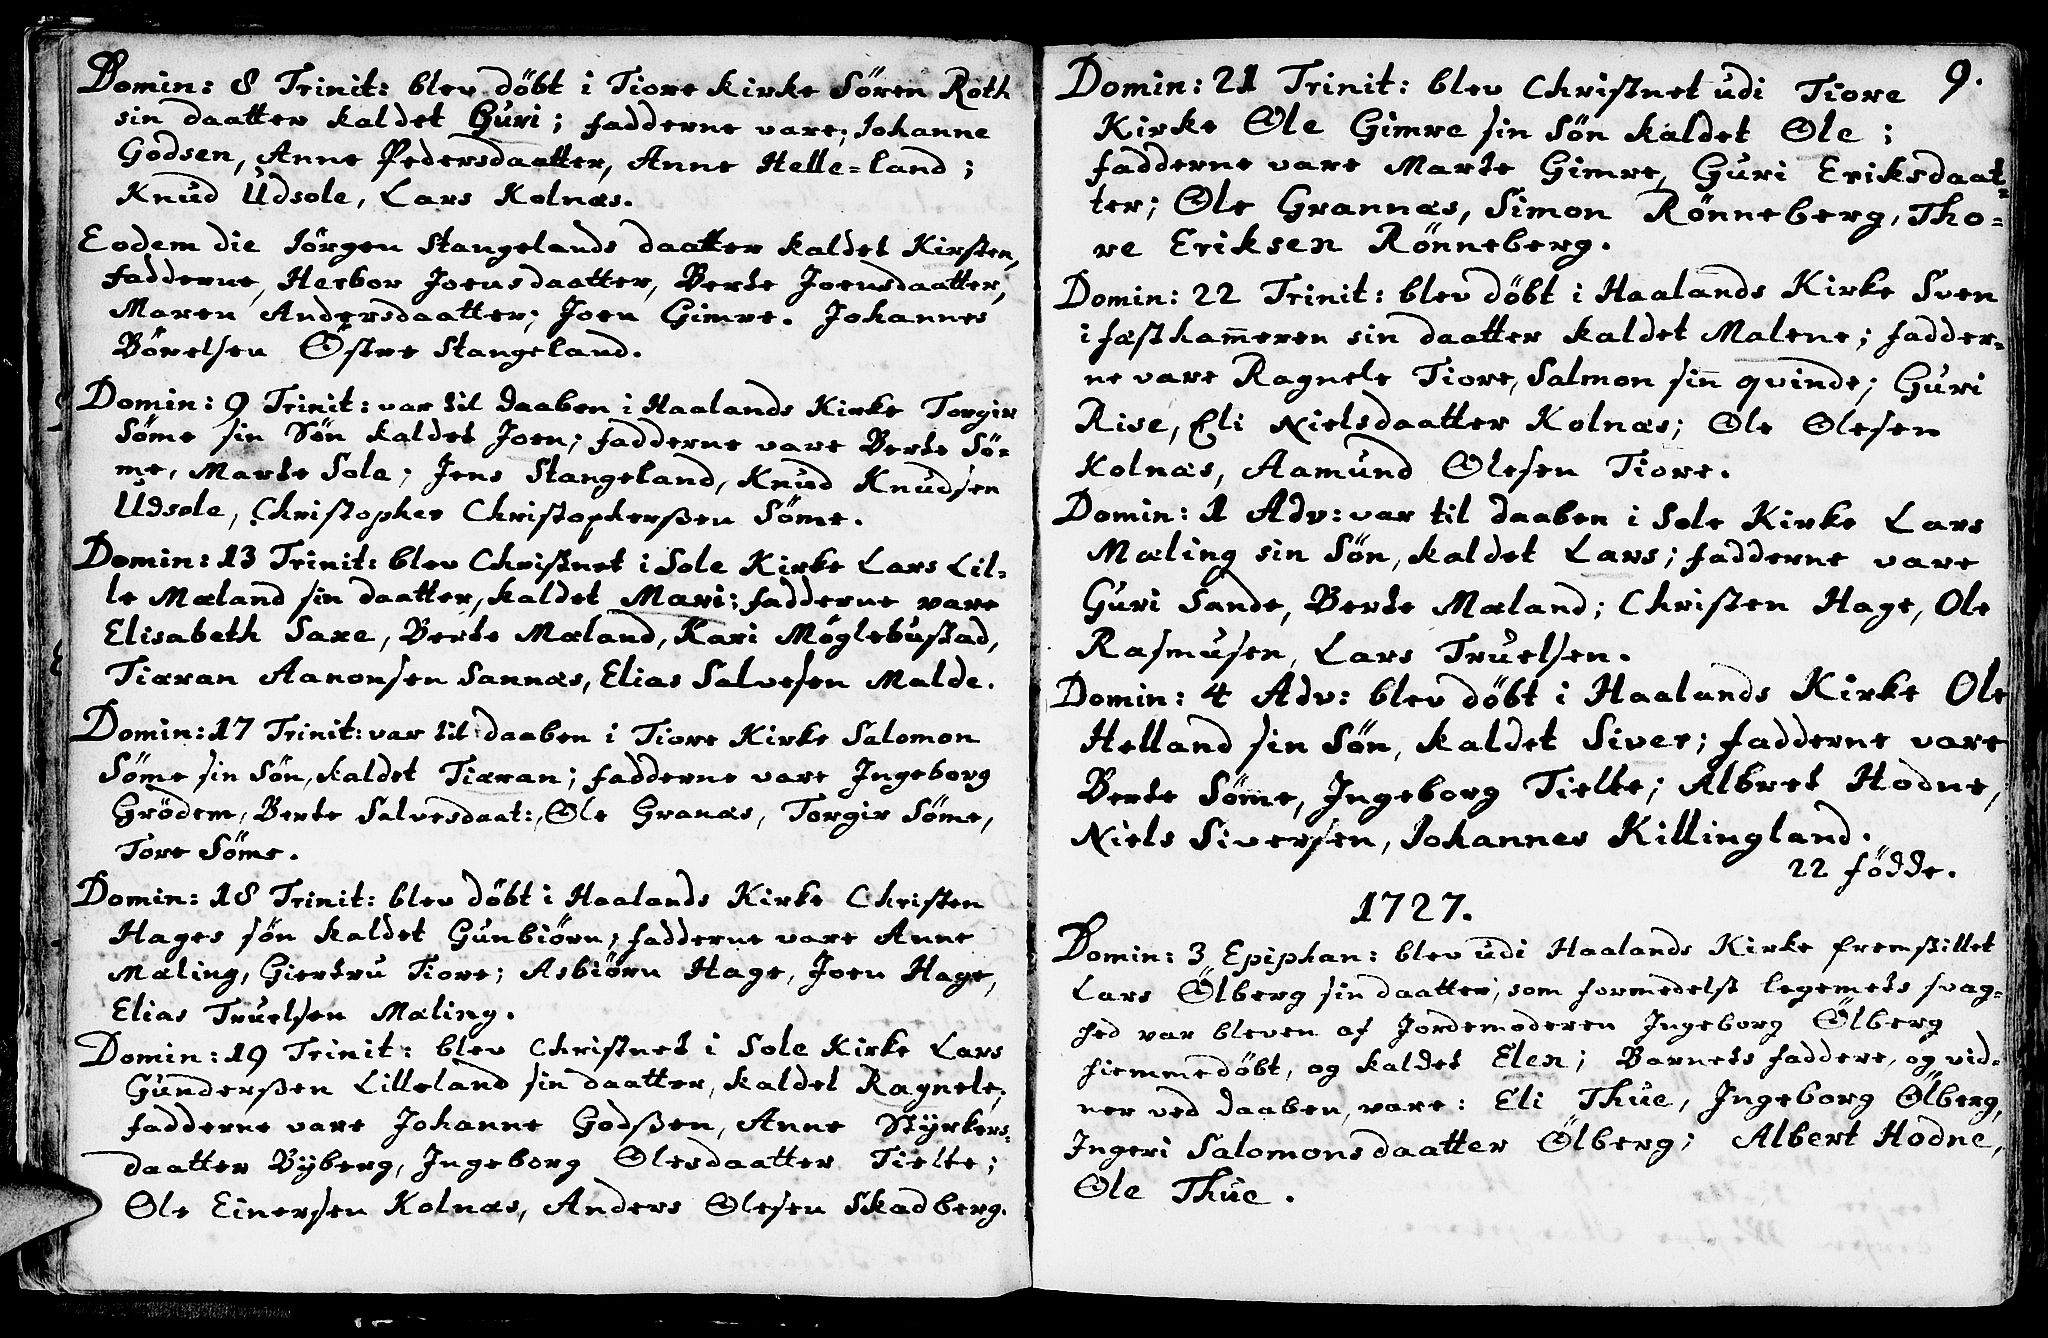 Domin: 8 Trinit: blev döbt i Tiore kirke Sören Roth
sin daatter kaldet Guri; fadderne vare; Johanne
Godsen, Anne Pedersdaatter, Anne Helle=land;
Knud Udsole, Lars Kolnæs.
Eodem die Jörgen Stangelands daatter kaldet Kirsten,
fadderne, Herbor Joensdaatter, Berte Joensdaatter,
Maren Andersdaatter; Joen Gimre. Johannes
Börelsen Östre Stangeland.
Domin: 9 Trinit: var til daaben i Haalands Kirke Torgir
Söme sin Sön kaldet Joen; fadderne vare Berte Sö=
me, Marte Sola; Jens Stangeland, Knud Knudsen
Udsole, Christopher Christopherßen Söme.
Domin: 13 Trinit: blev Christnet i Sole Kirke Lars Lil=
le Mæland sin daatter, kaldet Mari; fadderne vare
Elisabeth Saxe, Berte Mæland, Kari Möglebustad,
Tiæran Aanonsen Sannæs, Elias Salvesen Malde.
Domin: 17 Trinit: var til daaben i Tiore Kirke Salomon
Söme sin Sön, kaldet Tiæran; fadderne vare Ingeborg
Grödem, Berte Salvesdaat:, Ole Granæs, Torgir Söme,
Tore Söme.
Domin: 18 Trinit: blev döbt i Haalands Kirke Christen
Hages sön kaldet Gunbiörn; fadderne vare Anne
Mæling, Giertru Tiore; Asbiörn Hage, Joen Hage,
Elias Truelsen Mæling.
Domin: 19 Trinit: blev Christnet i Sole Kirke Lars
Gunderßen Lilleland sin daatter, kaldet Ragnele;
fadderne vare Johanne Godßen, Anne Styrkers=
daatter Byberg, Ingeborg Olesdaatter Tielte;
Ole Einersen Kolnæs, Anders Olesen Skadberg.
9.
Domin: 21 Trinit: blev Christnet udi Tiore
Kirke Ole Gimre sin Sön kaldet Ole;
fadderne vare Marte Gimre, Guri Eriksdaat=
ter; Ole Grannæs, Simon Rönneberg, Tho=
re Eriksen Rönneberg.
Domin: 22 Trinit: blev döbt i Haalands Kirke Sven
i fæstham̅eren sin daatter kaldet Malene; fadder=
ne vare Ragnele Tiore, Salmon sin̅ qvinde; Guri
Rise, Eli Nielsdaatter Kolnæs; Ole Olesen
Kolnæs, Aamund Olesen Tiore.
Domin: 1 Adv: var til daaben i Sole Kirke Lars
Mæling sin Sön, kaldet Lars; fadderne vare
Guri Sande, Berte Mæland; Christen Hage, Ole
Rasmusen, Lars Truelsen.
Domin: 4 Adv: blev döbt i Haalands Kirke Ole
Helland sin Sön, kaldet Siver; fadderne vare
Berte Söme, Ingeborg Tielte; Albret Hodne,
Niels Siversen, Johannes Killingland.
22 födde.
1727.
Domin: 3 Epiphan: blev udi Haalands Kirke fremstillet
Lars Ölberg sin daatter, som formedelst legemets svag=
hed var bleven af Jordemoderen Ingeborg Ölberg
hiemmedöbt, og kaldet Elen; Barnets faddere, og vid=
ner ved daaben, vare: Eli Thue, Ingeborg Ölberg,
Ingeri Salomonsdaatter Ölberg; Albert Hodne,
Ole Thue.